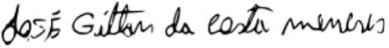 José Gilton da Costa meneses